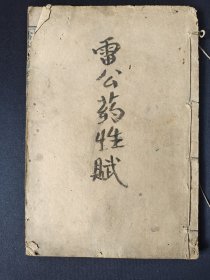 雷公药性賦